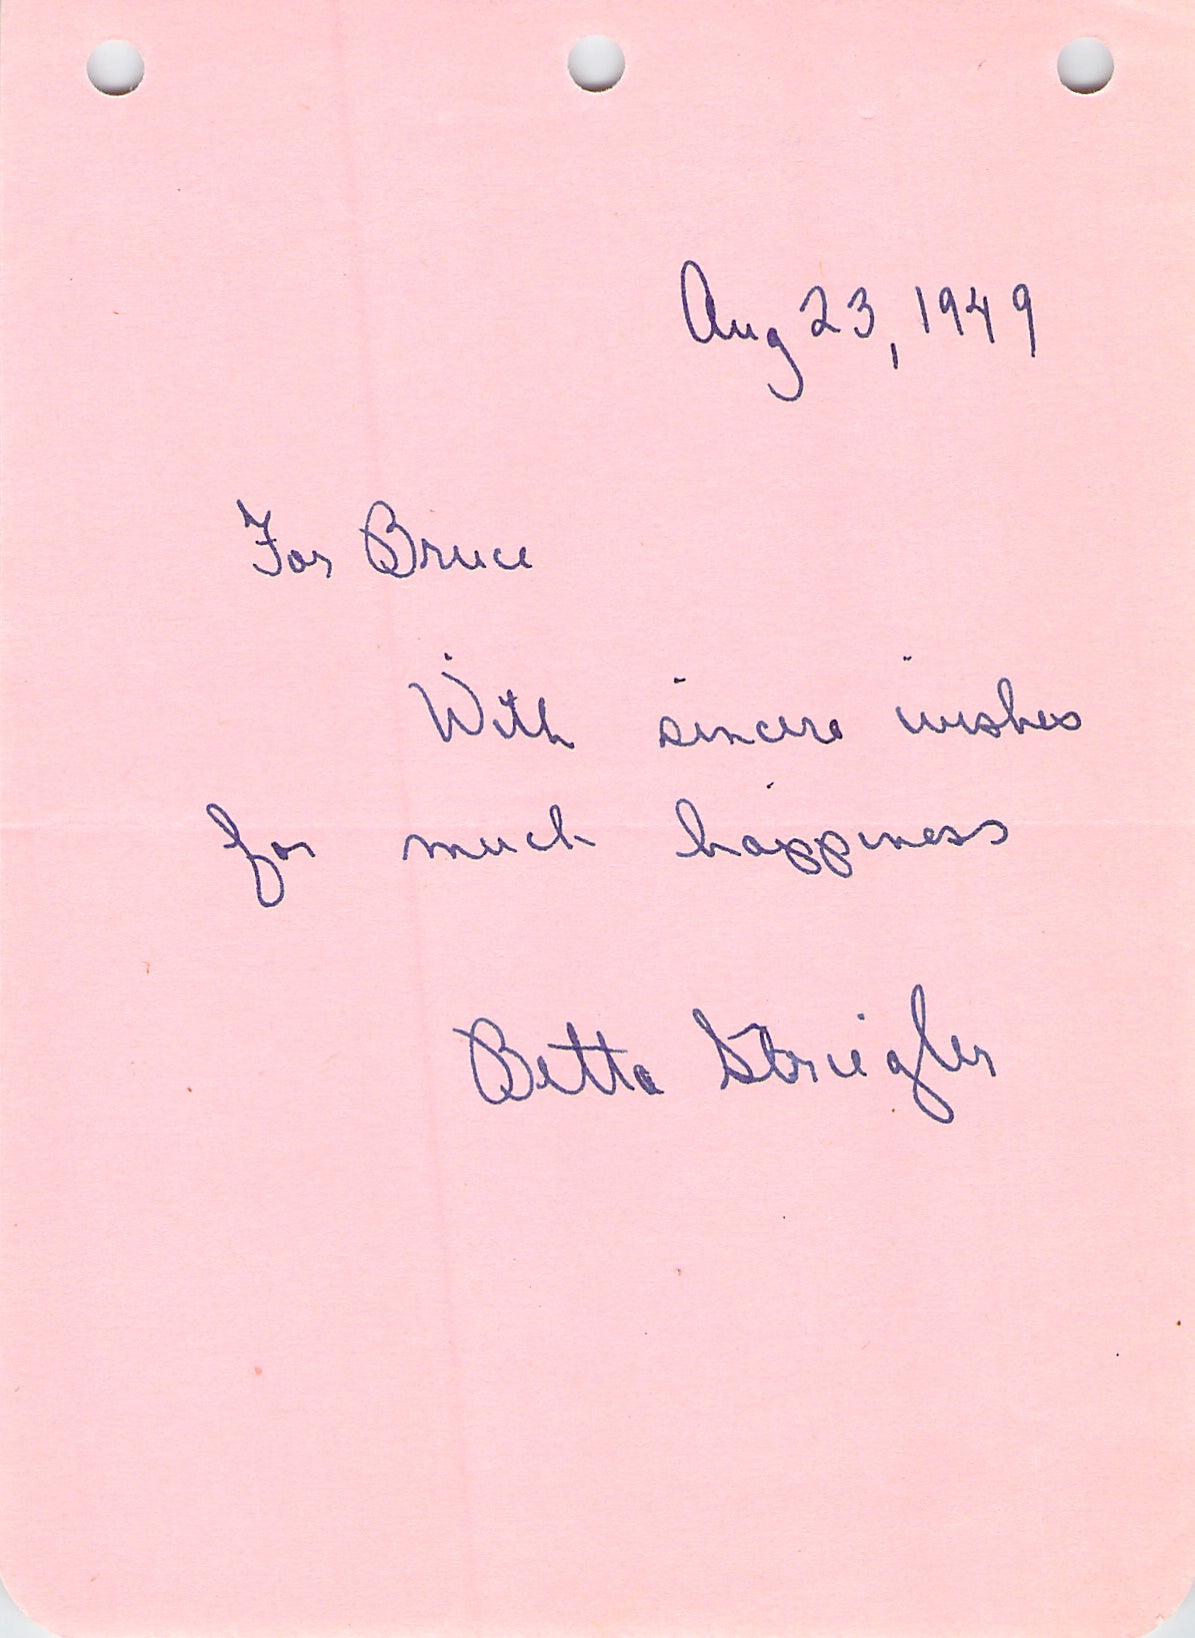 Aug 23, 1949
For Bruce
With sincere wishes
for much happiness
Betta Striegler